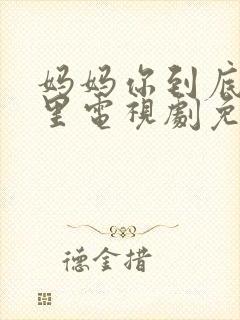 妈妈你到底
里电視劇免
德金措